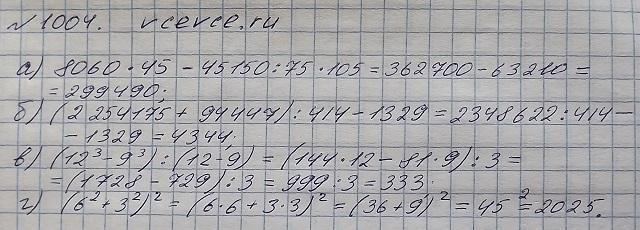 №1004. vcevce.ru
а) 8060·45 - 45150:75·105 = 362700 - 63210 =
= 299490;
б) (2254175 + 94447) : 414 - 1329 = 2348622 : 414 -
- 1329 = 4344;
в) (12³ - 9³) : (12 - 9) = (144·12 - 81·9) : 3 =
= (1728 - 729) : 3 = 999 : 3 = 333.
г) (6² + 3²)² = (6·6 + 3·3)² = (36 + 9)² = 45² = 2025.